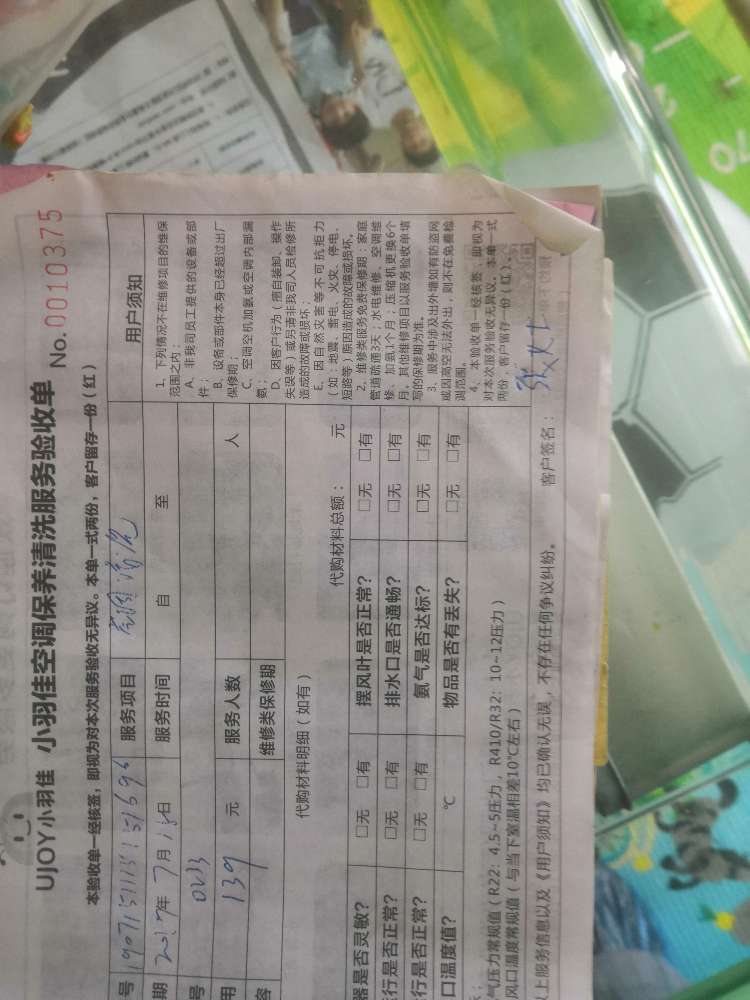 UJOY小羽佳 小羽佳空调保养清洗服务验收单
No. 0010375
本验收单一经核签，即视为对本次服务验收无异议。本单一式两份，客户留存一份（红）
号 服务项目 用户须知
期 年7月 日 服务时间 自 至
号
用 139 元 服务人数 人
容 维修类保修期
代购材料明细（如有） 代购材料总额： 元
器是否灵敏？ □无 □有 摆风叶是否正常？ □无 □有
行是否正常？ □无 □有 排水口是否通畅？ □无 □有
行是否正常？ □无 □有 氨气是否达标？ □无 □有
口温度值？ ℃ 物品是否有丢失？ □无 □有
1、下列情况不在维修项目的维保
范围之内：
A、非我司员工提供的设备或部
件；
B、设备或部件本身已经超过出厂
保修期；
C、空调空机加氨或空调内部漏
氨；
D、因客户行为（擅自装卸、操作
失误等）或另请非我司人员检修所
造成的故障或损坏；
E、因自然灾害等不可抗拒力
（如：地震、雷电、火灾、停电、
短路等）原因造成的故障或损坏。
2、维修类服务免费保修期：家庭
管道疏通3天；水电维修、空调维
修、加氨1个月；压缩机更换6个
月，其他维修项目以服务验收单填
写的保修期为准。
3、服务中涉及出外墙如有防盗网
或因高空无法外出，则不在免费检
测范围。
4、本验收单一经核签，即视为
对本次服务验收无异议。本单一式
两份，客户留存一份（红）。
气压力常规值（R22：4.5~5压力，R410/R32：10~12压力）
风口温度常规值（与当下室温相差10℃左右）
上服务信息以及《用户须知》均已确认无误，不存在任何争议纠纷。 客户签名： 张女士